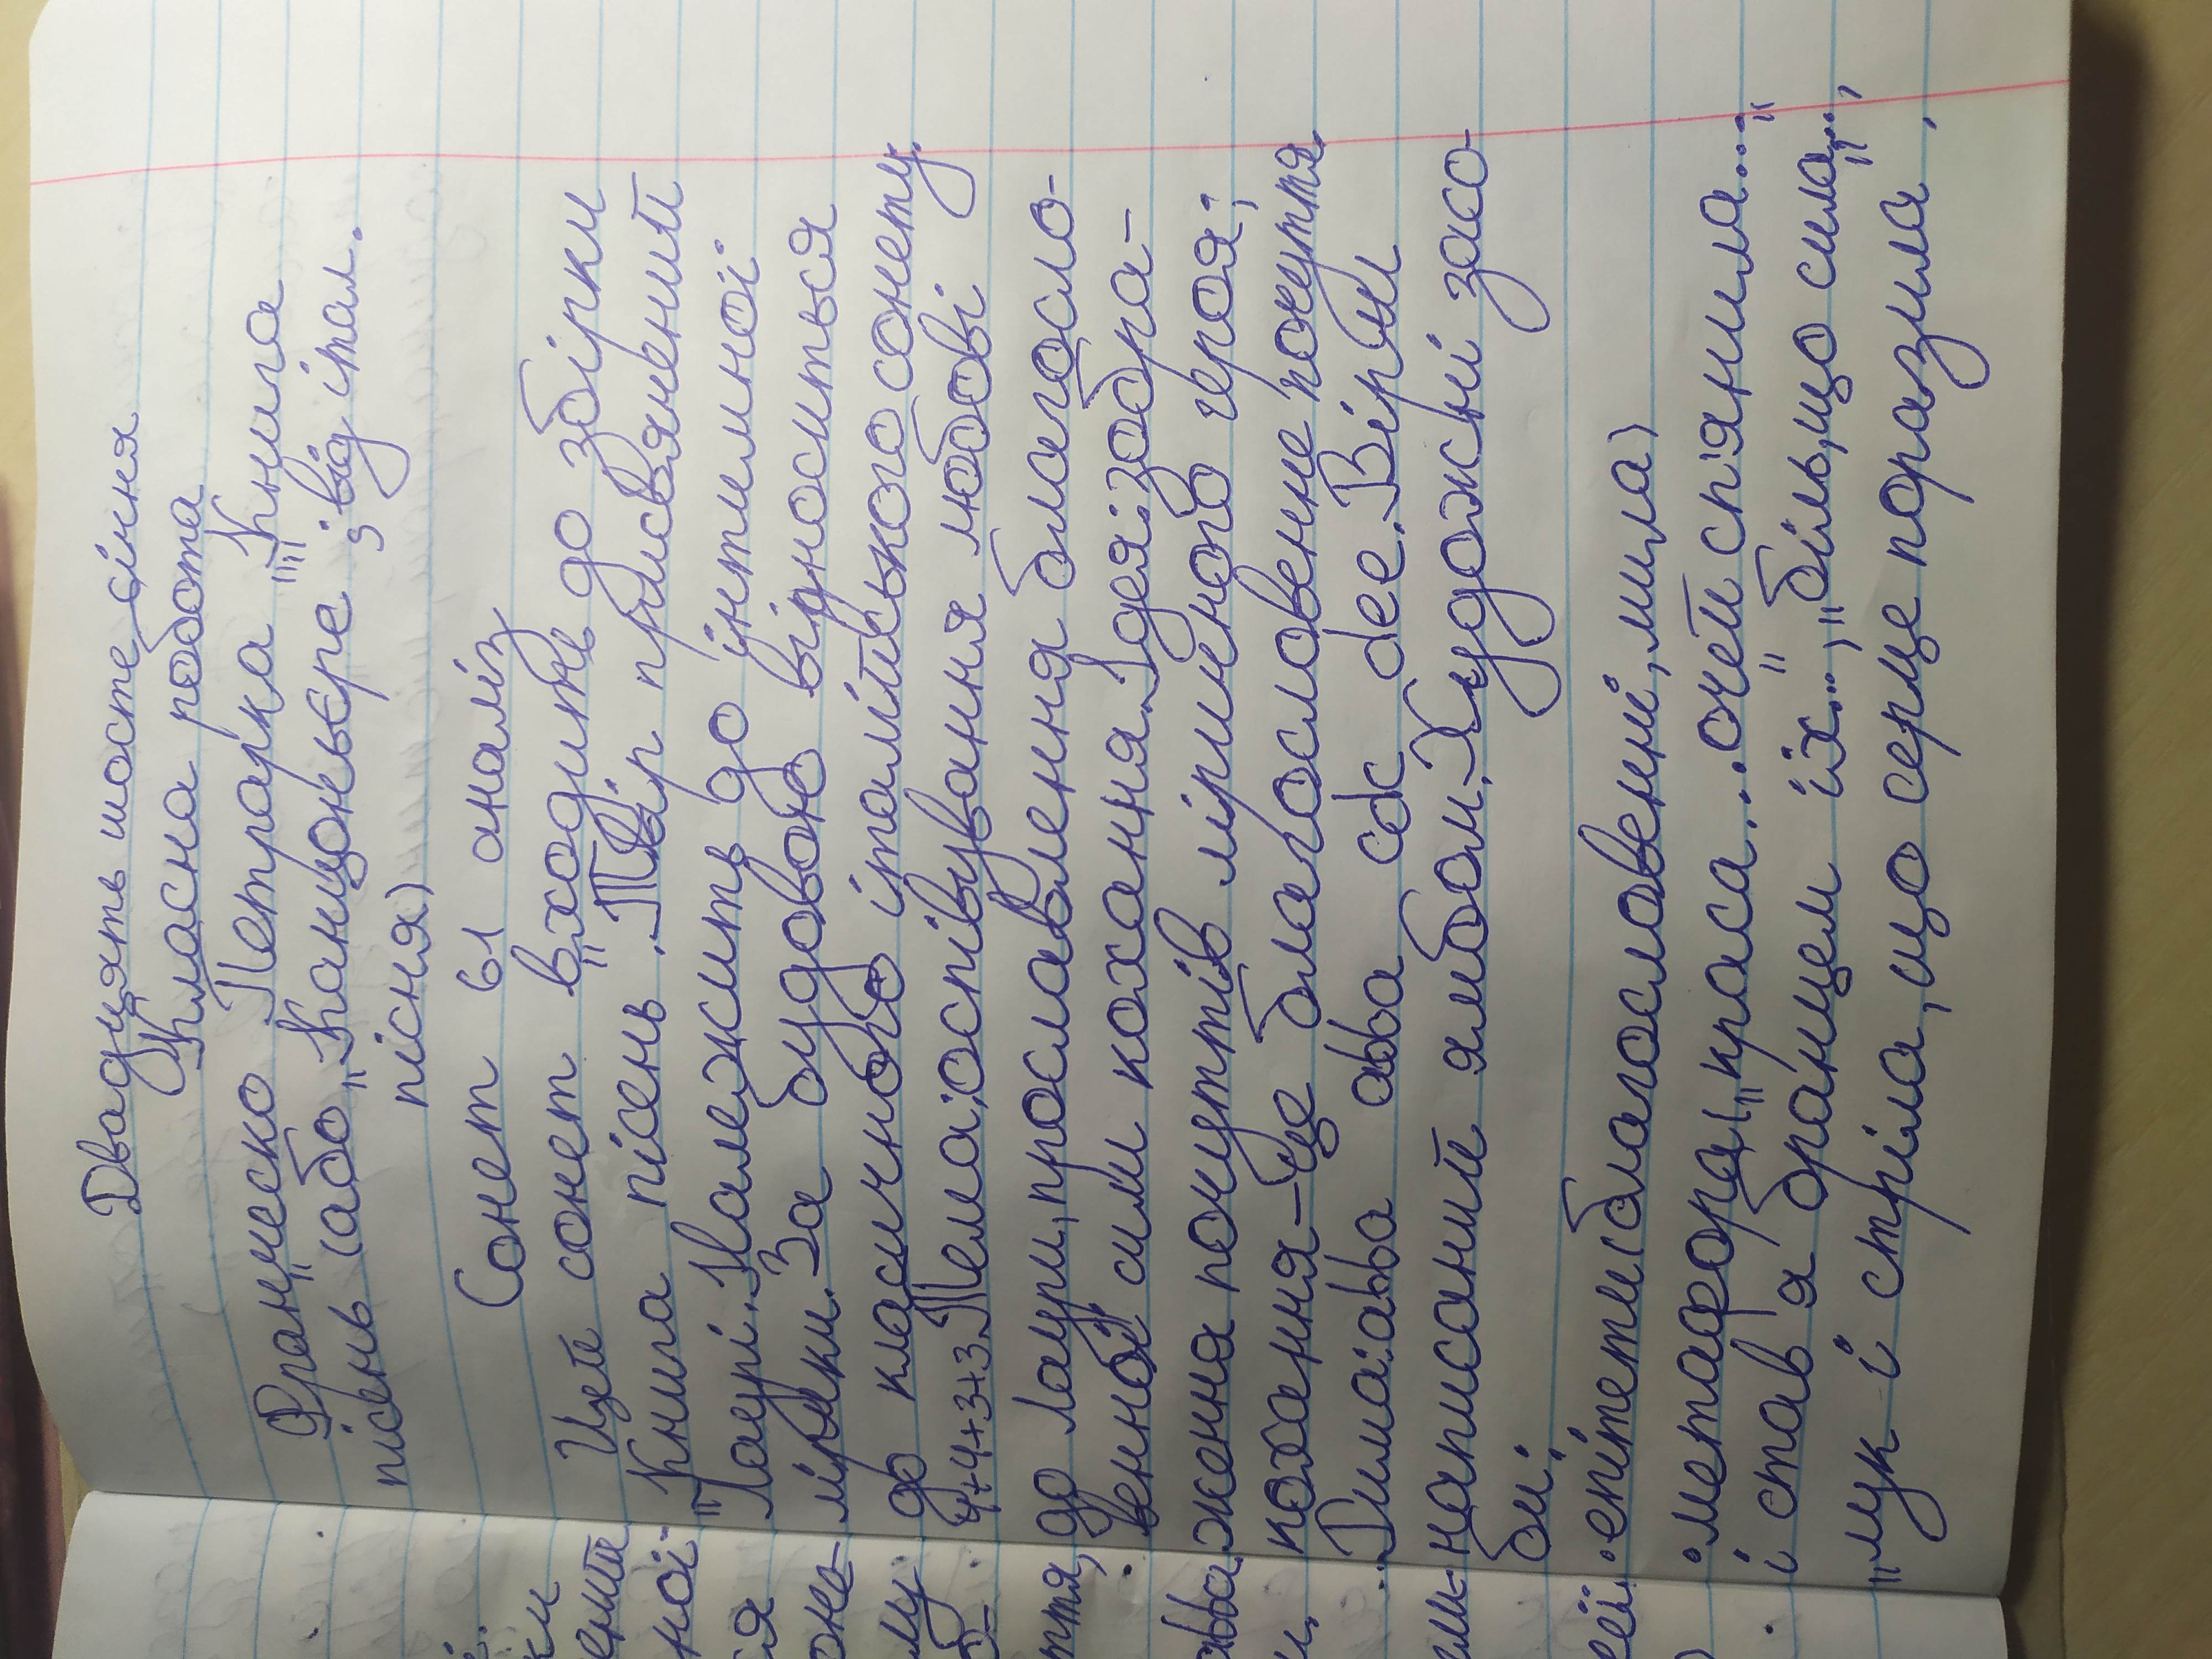 Двадцять шосте січня
Класна робота
Франческо Петрарка "Книга
пісень" (або "Канцоньєре"; від італ.
пісня)
Сонет 61 аналіз
Цей сонет входить до збірки
"Книга пісень". Твір присвячений
Лаурі. Належить до інтимної
лірики. За будовою відноситься
до класичного італійського сонету.
4+4+3+3. Тема: оспівування любові
до Лаури, прославлення благосло-
венної сили кохання. Ідея: зобра-
ження почуттів ліричного героя;
кохання – це благословенне почуття
Рима: abba abba cdc dee. Вірш
написаний ямбом. Художні засо-
би:
• епітети (благословенні, мила)
• метафори ("краса... очей сп'янила..."
і став я бранцем їх...", "біль, що сила...",
"лук і стріла, що серце поразила,